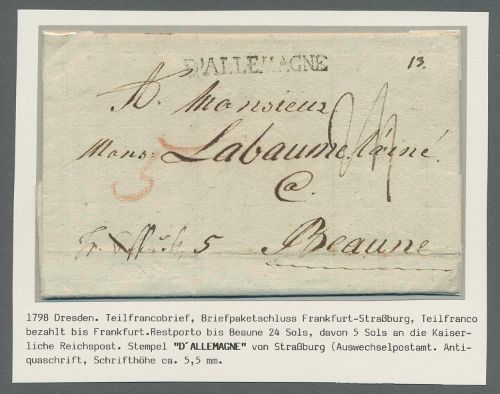 D'ALLEMAGNE
13.
A. Monsieur
Mons: Labaume l'ainé.
a.
5
Beaune
1798 Dresden. Teilfrancobrief, Briefpaketschluss Frankfurt-Straßburg, Teilfranco
bezahlt bis Frankfurt.Restporto bis Beaune 24 Sols, davon 5 Sols an die Kaiser-
liche Reichspost. Stempel "D´ALLEMAGNE" von Straßburg (Auswechselpostamt. Anti-
quaschrift, Schrifthöhe ca. 5,5 mm.